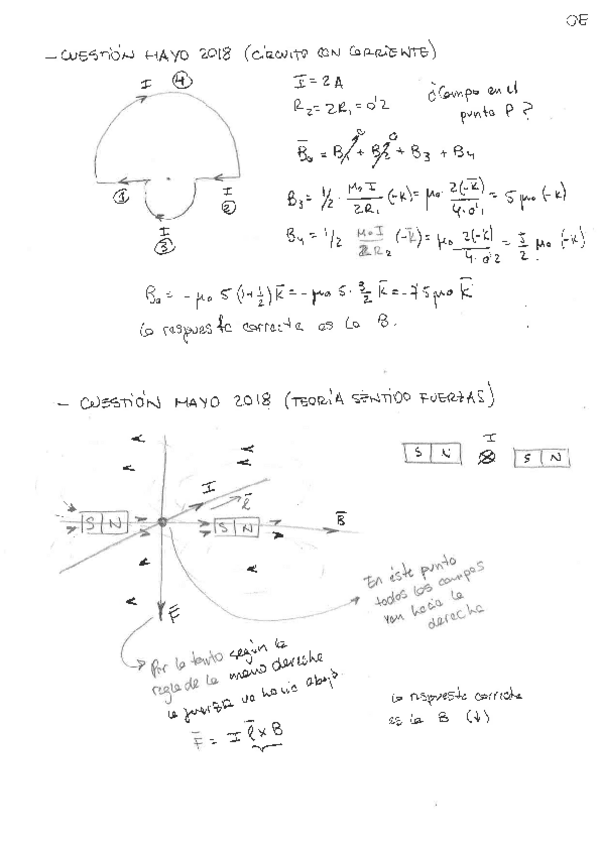 OE
- CUESTIÓN MAYO 2018 (CIRCUITO CON CORRIENTE)
I ④
I = 2A
R₂ = 2R₁ = 0'2
¿Campo en el
punto P?
① I ②
I ③
B̄₀ = B₁ + B₂ + B₃ + B₄
0 0
B₃ = 1/2 · μ₀ I / 2R₁ (-k) = μ₀ 2(-k̄) / 4·0'1 = 5 μ₀ (-k)
B₄ = 1/2 μ₀ I / 2R₂ (-k̄) = μ₀ 2(-k̄) / 4·0'2 = 5/2 μ₀ (-k)
B₀ = -μ₀ 5 (1+1/2) k̄ = -μ₀ 5 · 3/2 k̄ = -7'5 μ₀ k̄
la respuesta correcta es la B.
- CUESTIÓN MAYO 2018 (TEORÍA SENTIDO FUERZAS)
S N I ⊗ S N
I ℓ̄
S N S N B̄
F̄
En éste punto
todos los campos
van hacia la
derecha
Por lo tanto según la
regla de la mano derecha
la fuerza va hacia abajo
F̄ = I ℓ̄ × B
la respuesta correcta
es la B (↓)